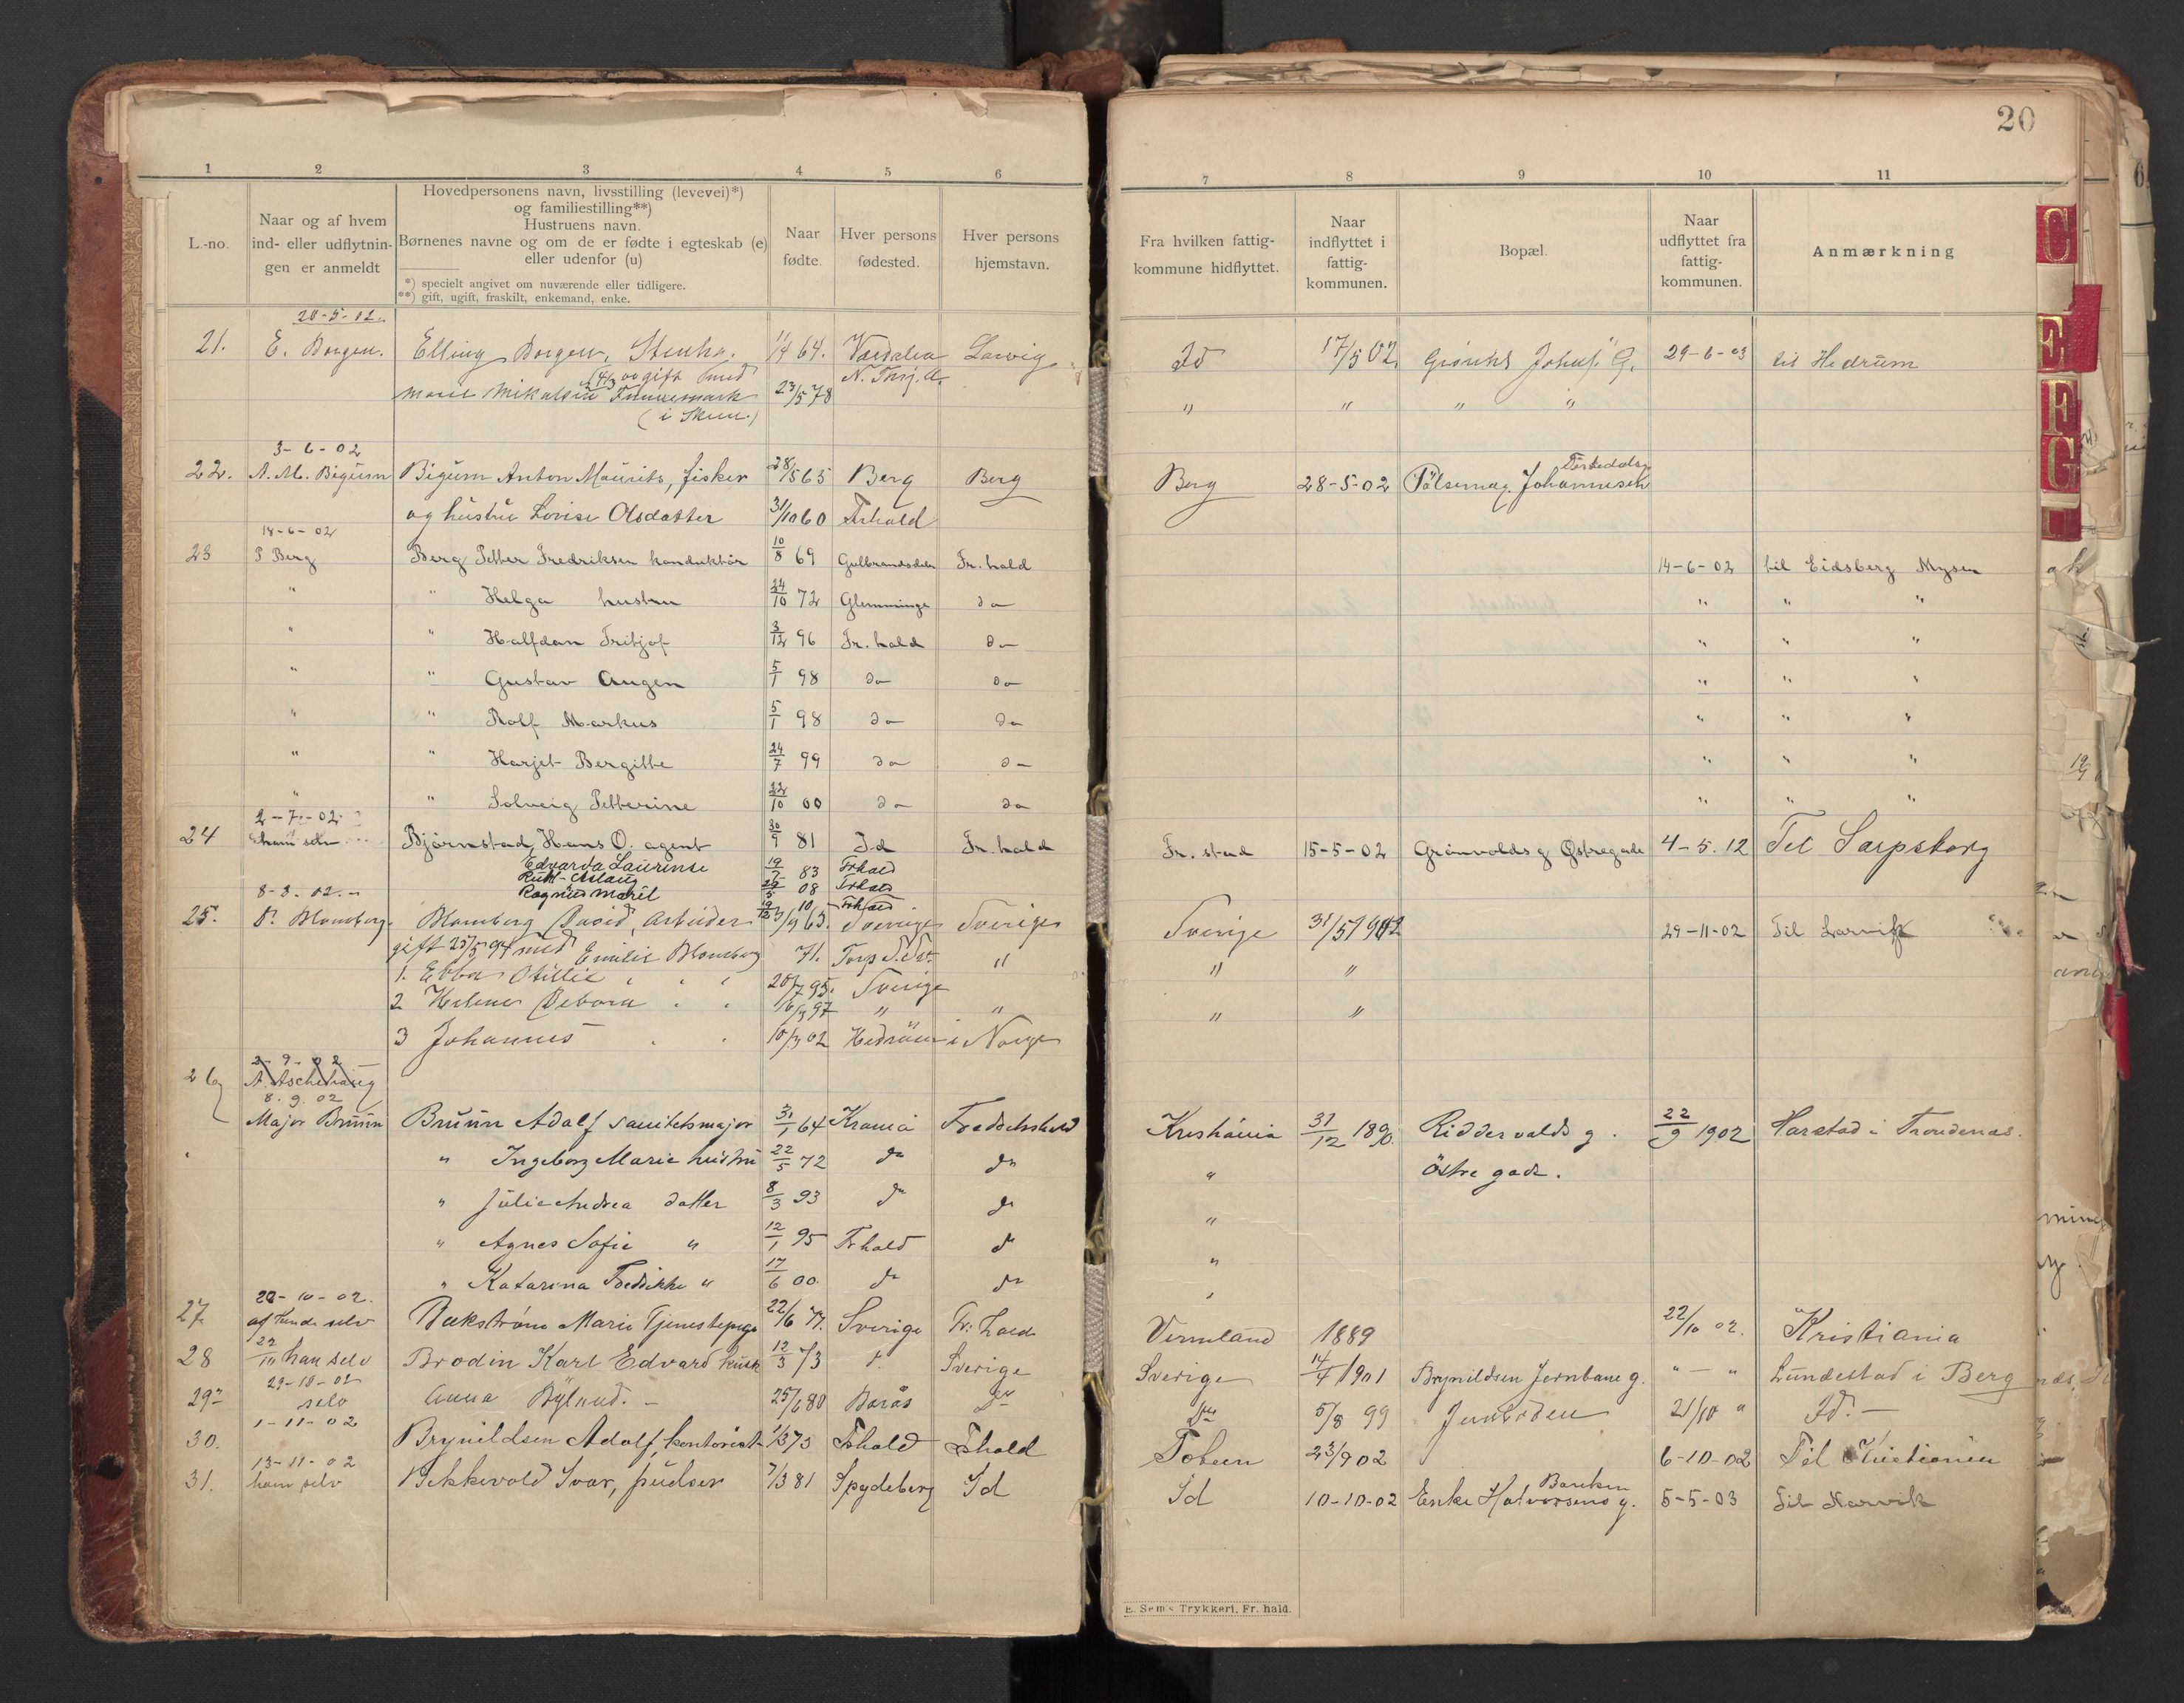 20
1 2 3 4 5 6 7 8 9 10 11
L.-no.
Naar og af hvem ind- eller udflytningen er anmeldt
Hovedpersonens navn, livsstilling (levevei)*)
og familiestilling**)
Hustruens navn.
Børnenes navne og om de er fødte i egteskab (e)
eller udenfor (u)
*) specielt angivet om nuværende eller tidligere.
**) gift, ugift, fraskilt, enkemand, enke.
Naar fødte.
Hver persons fødested.
Hver persons hjemstavn.
Fra hvilken fattigkommune hidflyttet.
Naar indflyttet i fattigkommunen.
Bopæl.
Naar udflyttet fra fattigkommunen.
Anmærkning
20-5-02.
21. E. Borgen. Elling Borgen, 64. Værdalen Larvig Id 17/5 02 29-6-03 til Hedrum
gift med N. Thrj. A.
Marie Mikalsen 23/5 78 " " " "
(i Skien.)
3-6-02
22. A. M. Bigum Bigum Anton Maurits, fisker 28/5 65 Berg Berg Berg 28-5-02 Pölsemag. Johannesen
og hustru Lovise Olsdatter 31/10 60 Frhald
18-6-02
23 P Berg Berg Petter Fredriksen konduktör 10/8 69 Gulbrandsdalen Fr. hald 14-6-02 til Eidsberg Mysen
" " Helga hustru 24/10 72 Glemminge do " " "
" " Halfdan Fritjof 3/12 96 Fr. hald do " " "
" " Gustav Augen 5/1 98 do do " " "
" " Rolf Markus 5/1 98 do do " " "
" " Harjet Bergitte 24/7 99 do do " " "
" " Solveig Petterine 22/10 00 do do " " "
2-7-02
24 ham selv Bjørnstad, Hans O. agent 30/9 81 Id Fr. hald Fr. stad 15-5-02 Grönvolds g Østregade 4-5.12 Til Sarpsborg
Edvarda Laurense 19/7 83 Frhald
Ruth Aslaug 08 Frhald
8-3.02. Ragnus Marel 10 Frhald
25. D. Blomberg. Blomberg David, Arbeider 65. Sverige Sverige Sverige 31/5 1902 29-11-02 Til Larvik
gift 25/5 94 med Emilie Blomberg 71. Torp " " "
1. Ebba Otillie 20/7 95. Sverige
2 Helene Debora 16/9 97 " " " "
3 Johannes 10/3 02 Hedrum i Norge
2-9-02
26 A. Aschehaug
8.9.02
Major Bruun Bruun Adolf sanitetsmajor 31/1 64 Krania Fredrikshald Kristiania 31/12 1890. Riddervolds g. 22/9 1902 Harstad i Trondenæs.
" Ingeborg Marie hustru 22/5 72 do do " Östre gade.
" Julie Andrea datter 8/3 93 do do "
" Agnes Sofie " 12/1 95 Frhald do "
" Katarina Fredrikke " 17/6 00. do do "
22-10-02.
27 af hende selv Bækstrøm Marie Tjenestepige 22/6 71. Sverige Fr: hald Vermland 1889 22/10 02. Kristiania
28 22/10 han selv Brodin Karl Edvard kusk 12/3 73 d. Sverige Sverige 14/4 1901 Brynildsen Jernbane g. " - " Lundestad i Berg
29-10-02
29 selv Anna Bylund. - 25/6 80 Borås Do Do 5/8 99 21/10 " Id. -
1-11-02
30. Brynildsen Adolf, kontorist 1/3 73 Fshald Fshald Toten 23/9 02 6-10-02 Til Kristiania
13-11-02
31. ham selv Bekkevold Ivar, pudser 7/3 81 Spydeberg Id Id 10-10-02 Enke Halvorsens g. Banken 5-5-03 Til Narvik
E. Sem's Trykkeri, Fr. hald.